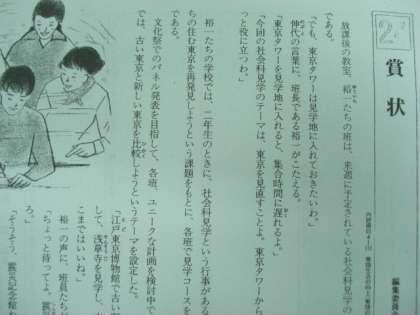 2
賞状
編集委員会
放課後の教室。裕一たちの班は、来週に予定されている社会科見学の
である。
「でも、東京タワーは見学地に入れておきたいわ。」
伸代の言葉に、班長である裕一がこたえる。
「東京タワーを見学地に入れると、集合時間に遅れるよ。」
「今回の社会科見学のテーマは、東京を見直すことよ。東京タワーから
っと役に立つわ。」
裕一たちの学校では、二年生のときに、社会科見学という行事がある
ちの住む東京を再発見しようという課題をもとに、各班で見学コースを
である。
文化祭でのパネル発表を目指して、各班、ユニークな計画を検討中で
では、古い東京と新しい東京を比較しようというテーマを設定した。
「江戸東京博物館で古い
して、浅草寺を見学、
こまではいいね。」
裕一の声に、班員たち
「ちょっと待ってよ。
ろ。」
「そうそう、震災記念館